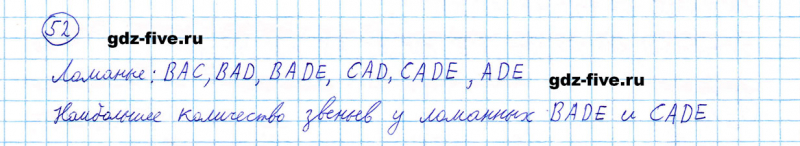 52
gdz-five.ru
Ломаные: ВАС, BAD, BADE, CAD, CADE, ADE
gdz-five.ru
Наибольшее количество звеньев у ломанных BADE и CADE